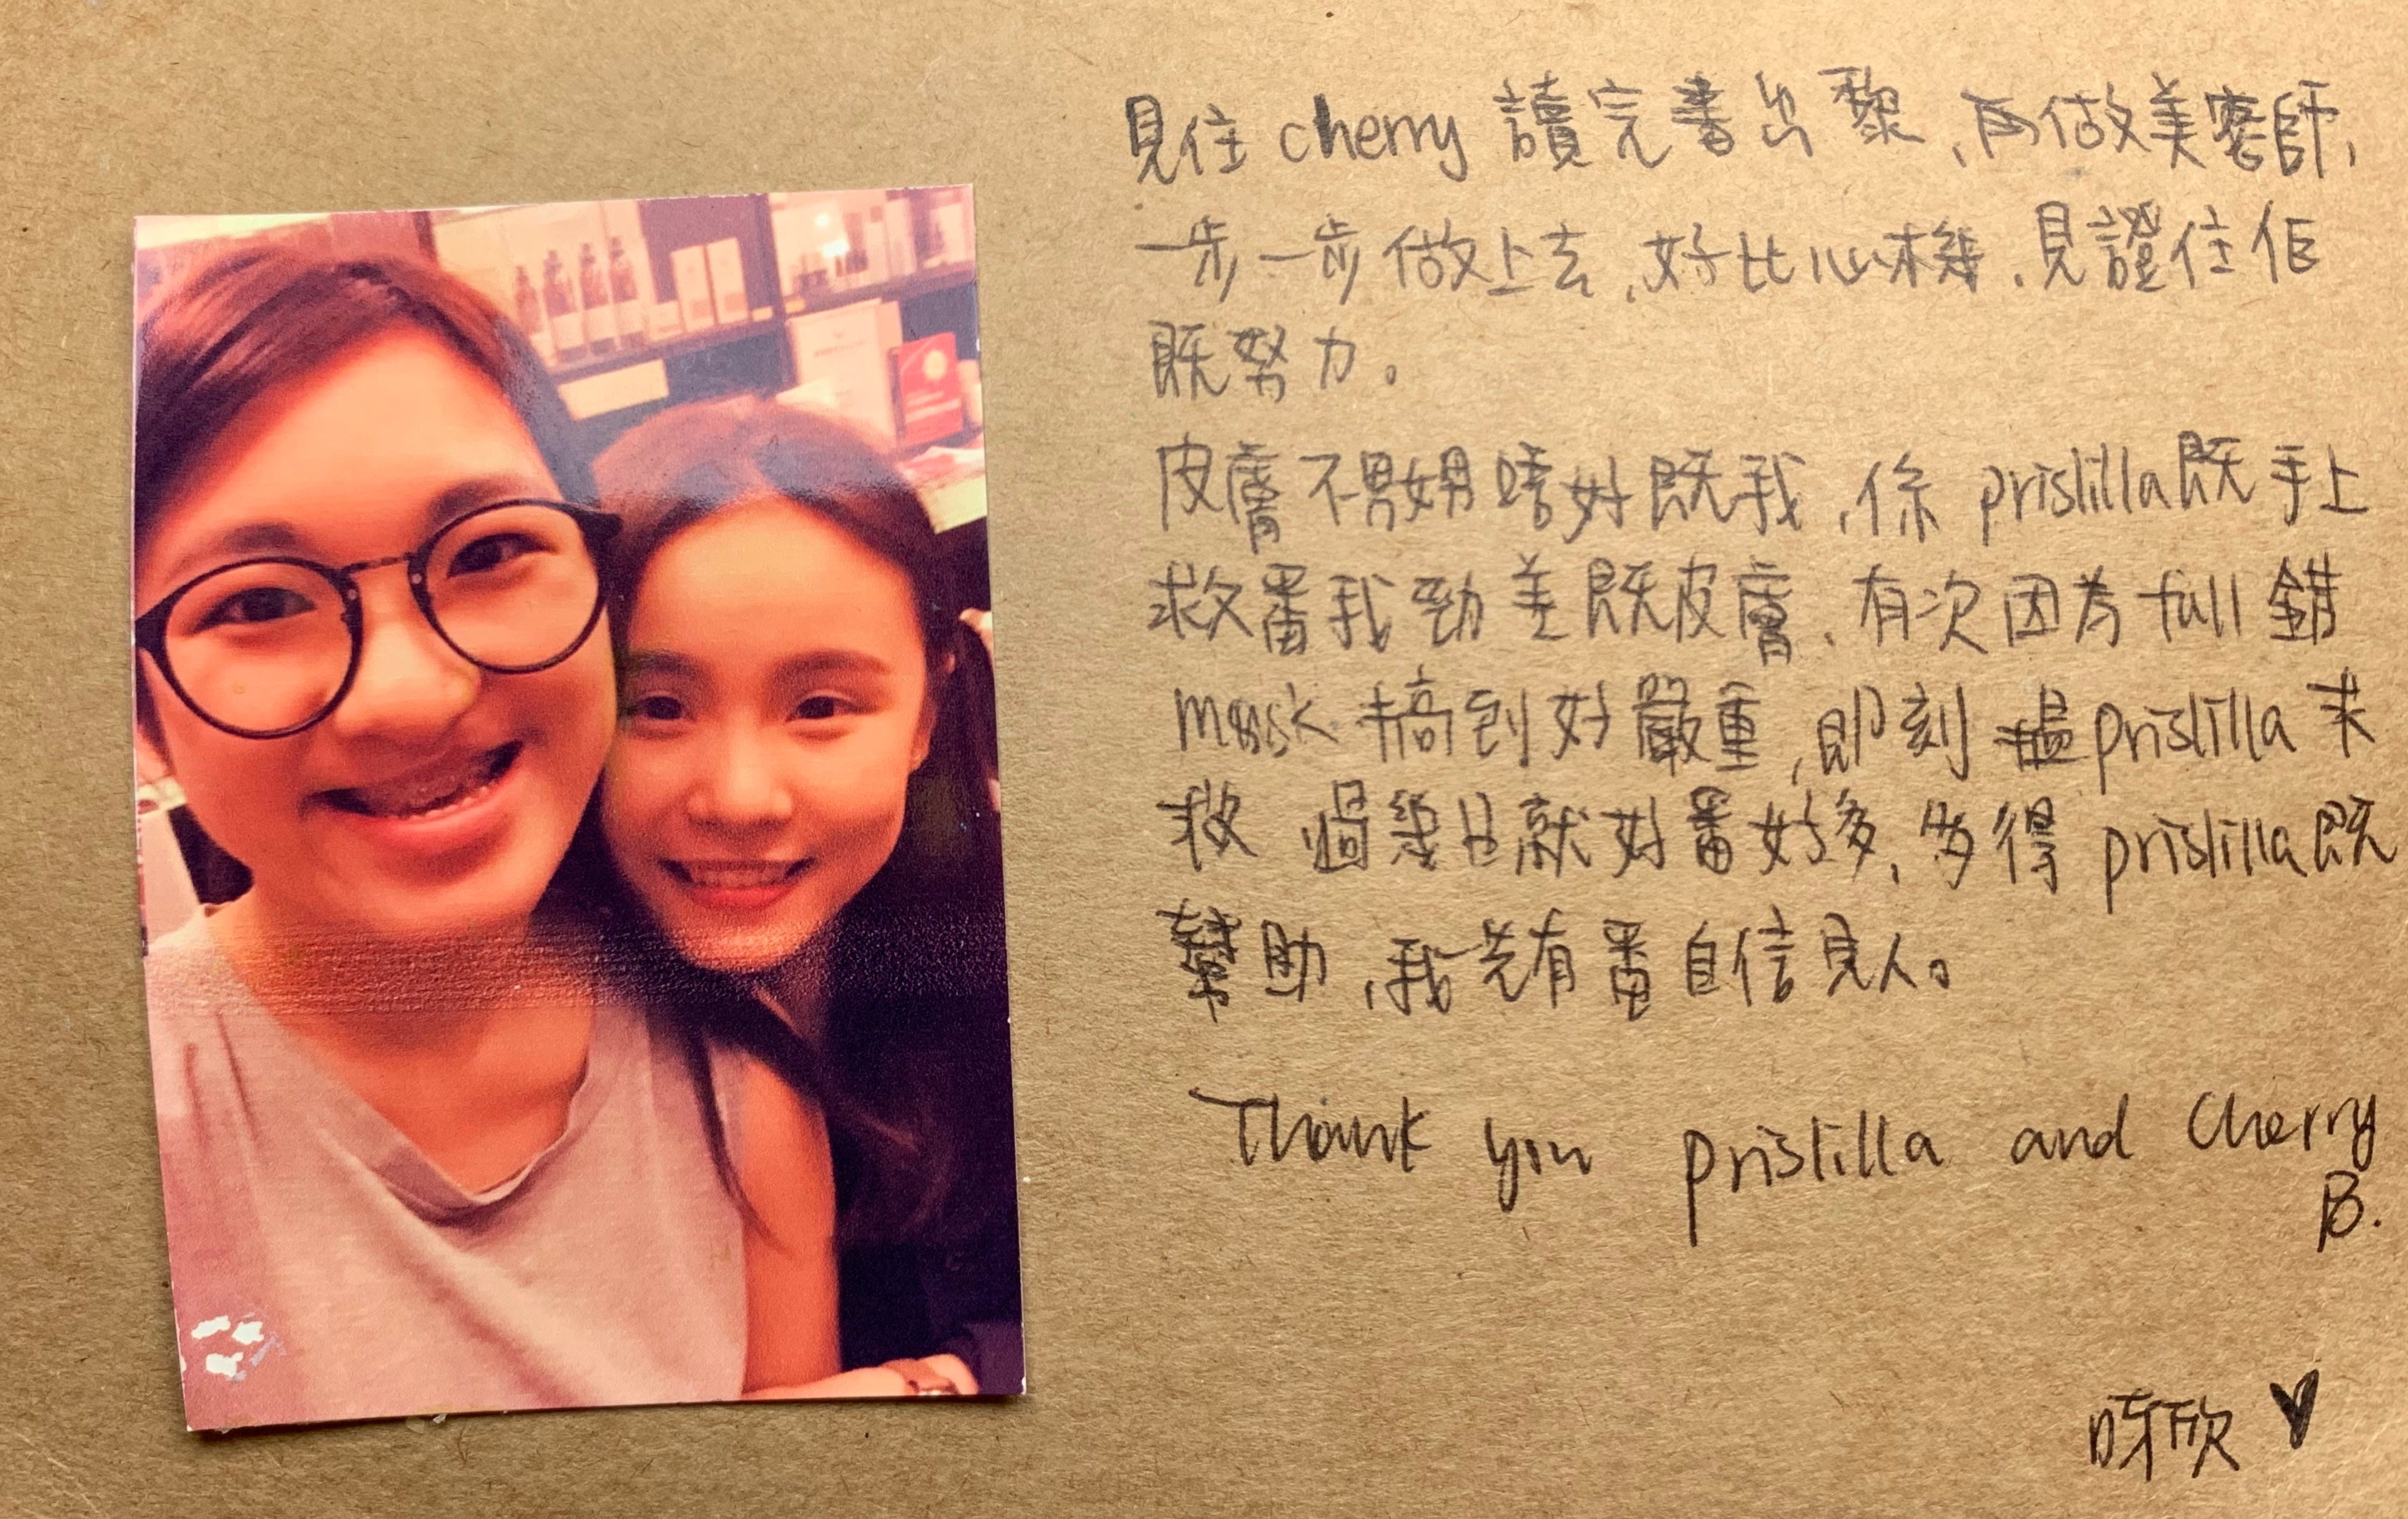 見住 cherry 讀完書出黎、再做美容師,
一步一步做上去,好比心機,見證住佢
既努力。
皮膚不嬲唔好既我,係 prislilla既手上
救番我勁差既皮膚,有次因為 full 錯
mask 搞到好嚴重,即刻揾prislilla求
救 過幾日就好番好多,多得 prislilla既
幫助,我先有番自信見人。
Thank you prislilla and Cherry
B.
欣 ♥